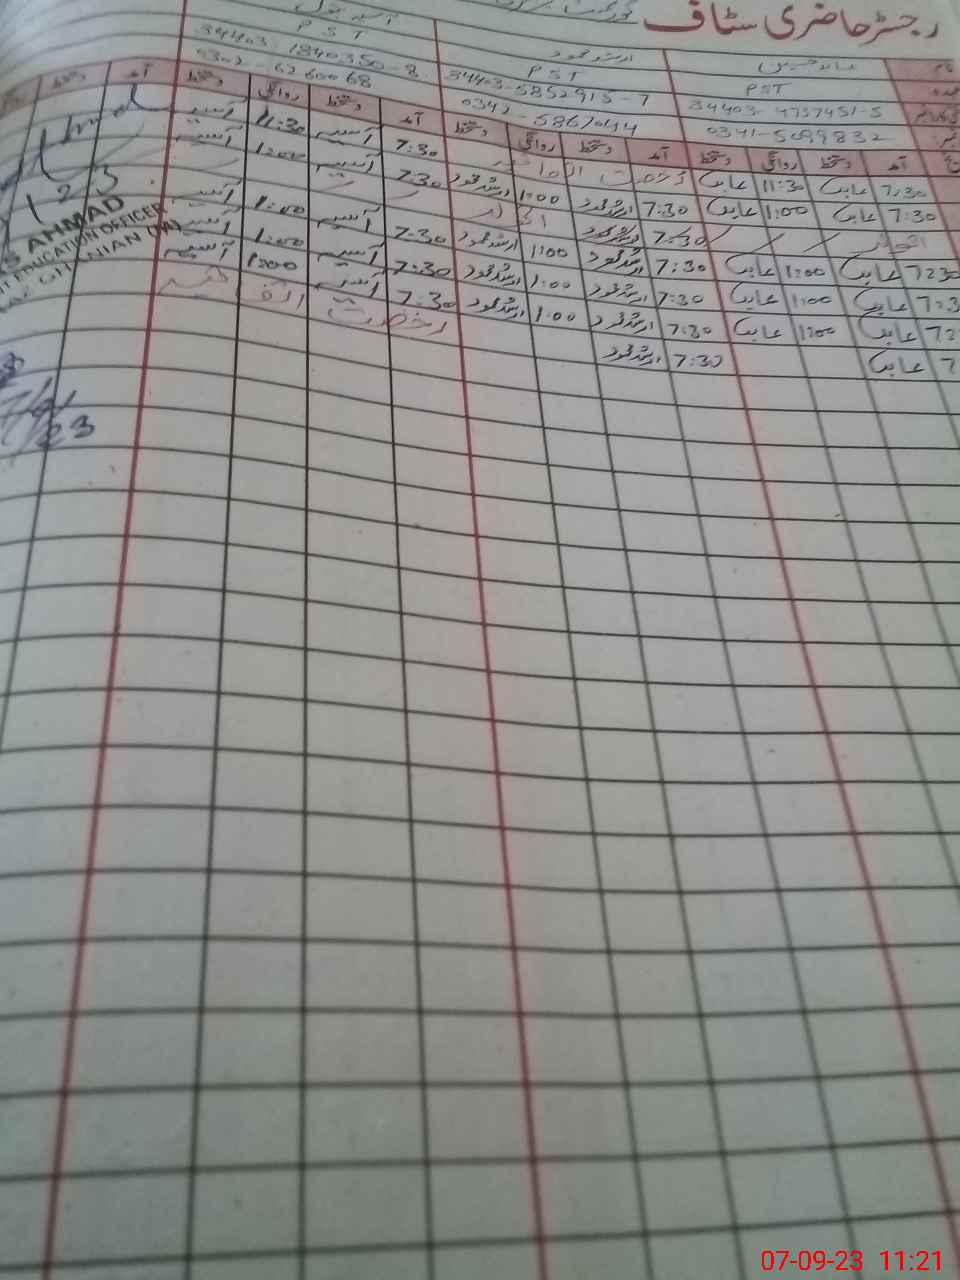 رجسٹر حاضری سٹاف
نام عابد حسین ارشد محمود آسیہ بتول
عہدہ PST PST PST
34403-4757451-5 34403-5852915-7 34403-1840350-8
0341-5099832 0342-5867044 0302-6260068
آمد دستخط روانگی دستخط آمد دستخط روانگی دستخط آمد دستخط روانگی دستخط آمد دستخط
7:30 عابد 11:30 عابد رخصت 7:30 آسیہ 11:30 آسیہ
7:30 عابد 1:00 عابد 7:30 ارشد محمود 1:00 ارشد محمود 7:30 آسیہ 1:00 آسیہ
اتوار 7:30 ارشد محمود اتوار
7:30 عابد 1:00 عابد 7:30 ارشد محمود 1:00 ارشد محمود 7:30 آسیہ 1:00 آسیہ
7:3 عابد 1:00 عابد 7:30 ارشد محمود 1:00 ارشد محمود 7:30 آسیہ 1:00 آسیہ
عابد 1:00 عابد 7:30 ارشد محمود 1:00 ارشد محمود 7:30 آسیہ 1:00 آسیہ
7 عابد 7:30 ارشد محمود رخصت
AHMAD
EDUCATION OFFICER
07-09-23 11:21